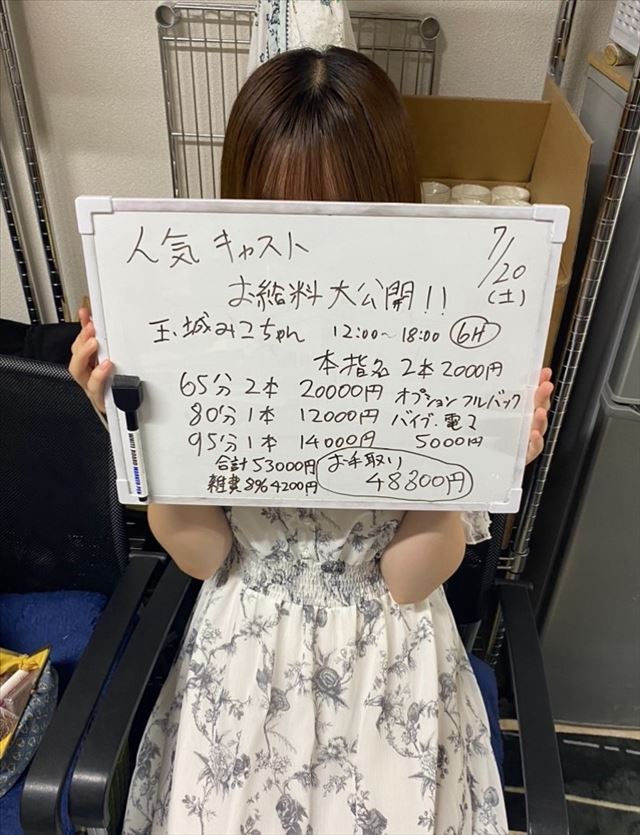 人気キャスト
7/20
(土)
お給料大公開!!
玉城みこちゃん 12:00〜18:00 6H
本指名 2本 2000円
65分 2本 20000円 オプションフルバック
80分 1本 12000円 バイブ・電マ
95分 1本 14000円 5000円
合計 53000円 お手取り
雑費 8% 4200円 48800円
WHITE BOARD MARKER PEN